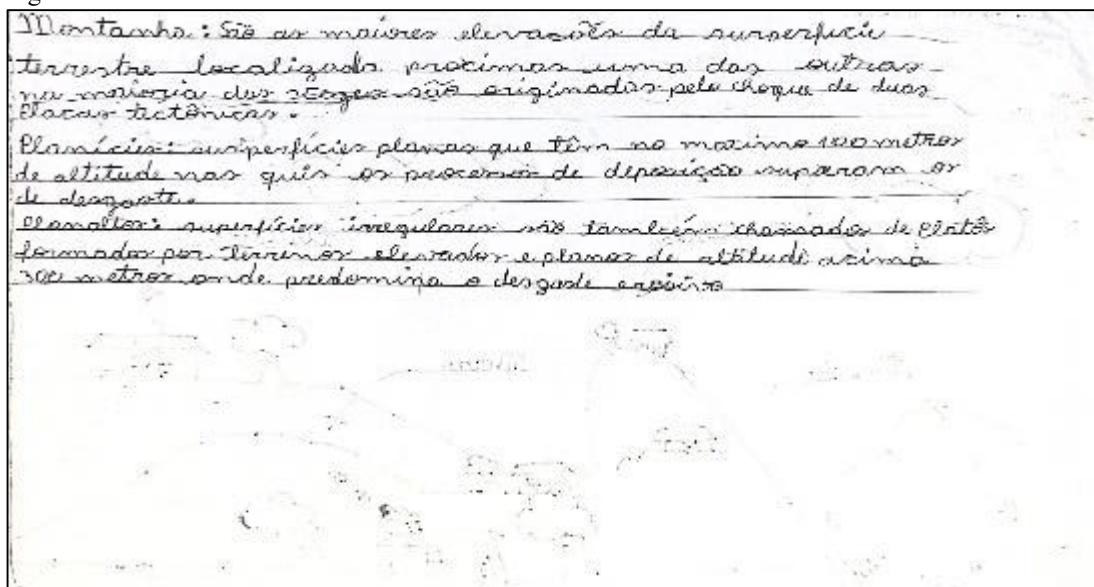 Montanha: São as maiores elevações da surperfície
terrestre localizada procimas uma das outras
na maioria das vezes são originadas pelo choque de duas
Placas tectônicas.
Planícies: surperfícies planas que têm no maximo 100 metros
de altitude nas quis os processos de deposição superam os
de desgaste.
Planaltos: superfícies irregulares são também chamados de Platôs
formados por terrenos elevados e planos de altitude acima
300 metros onde predomina o desgaste